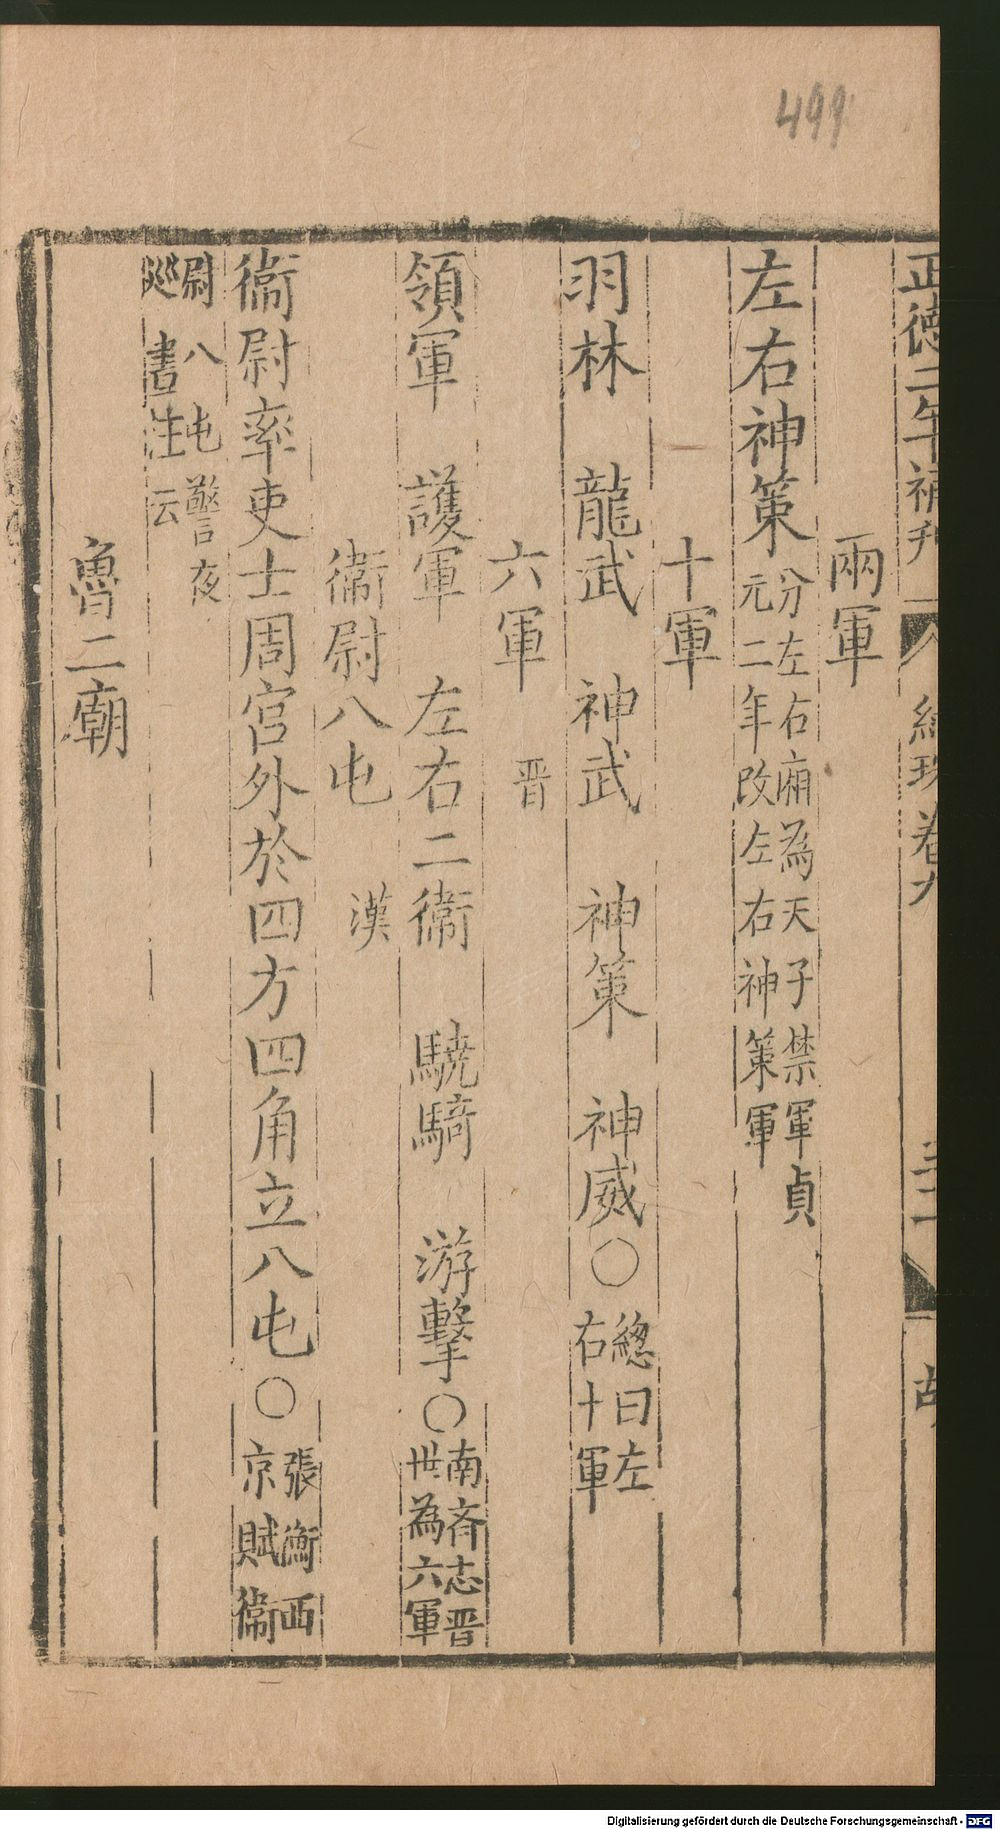 499
正德二年補刊
卷九
兩軍
左右神策 分左右廂為天子禁軍貞
元二年改左右神策軍
十軍
羽林 龍武 神武 神策 神威○ 緫曰左
右十軍
六軍 晋
領軍 護軍 左右二衞 驍騎 游擊○ 南齊志晋
世為六軍
衞尉八屯 漢
衞尉率吏士周宫外於四方四角立八屯○ 張衡西
京賦衞
尉八屯警夜
巡晝注云
魯二廟
Digitalisierung gefördert durch die Deutsche Forschungsgemeinschaft - DFG